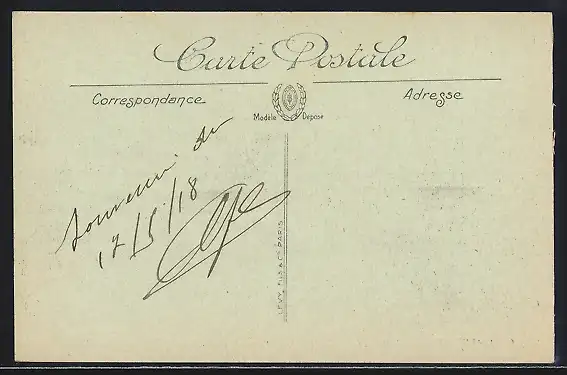 Carte Postale
Correspondance
Adresse
Modèle Déposé
Souvenir du
17/5/18
LEVY FILS & Cie PARIS